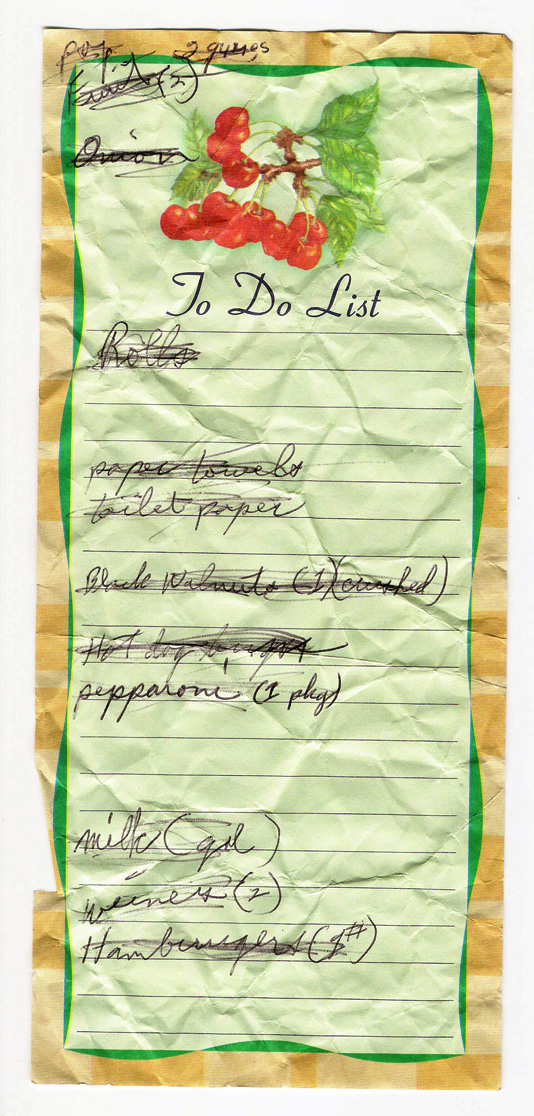 pop
Onion
To Do List
Rolls
paper towels
toilet paper
Black Walnuts (1)(crushed)
Hot dog
pepparoni (1 pkg)
milk (gal)
weiners (2)
Hamburgers (3#)